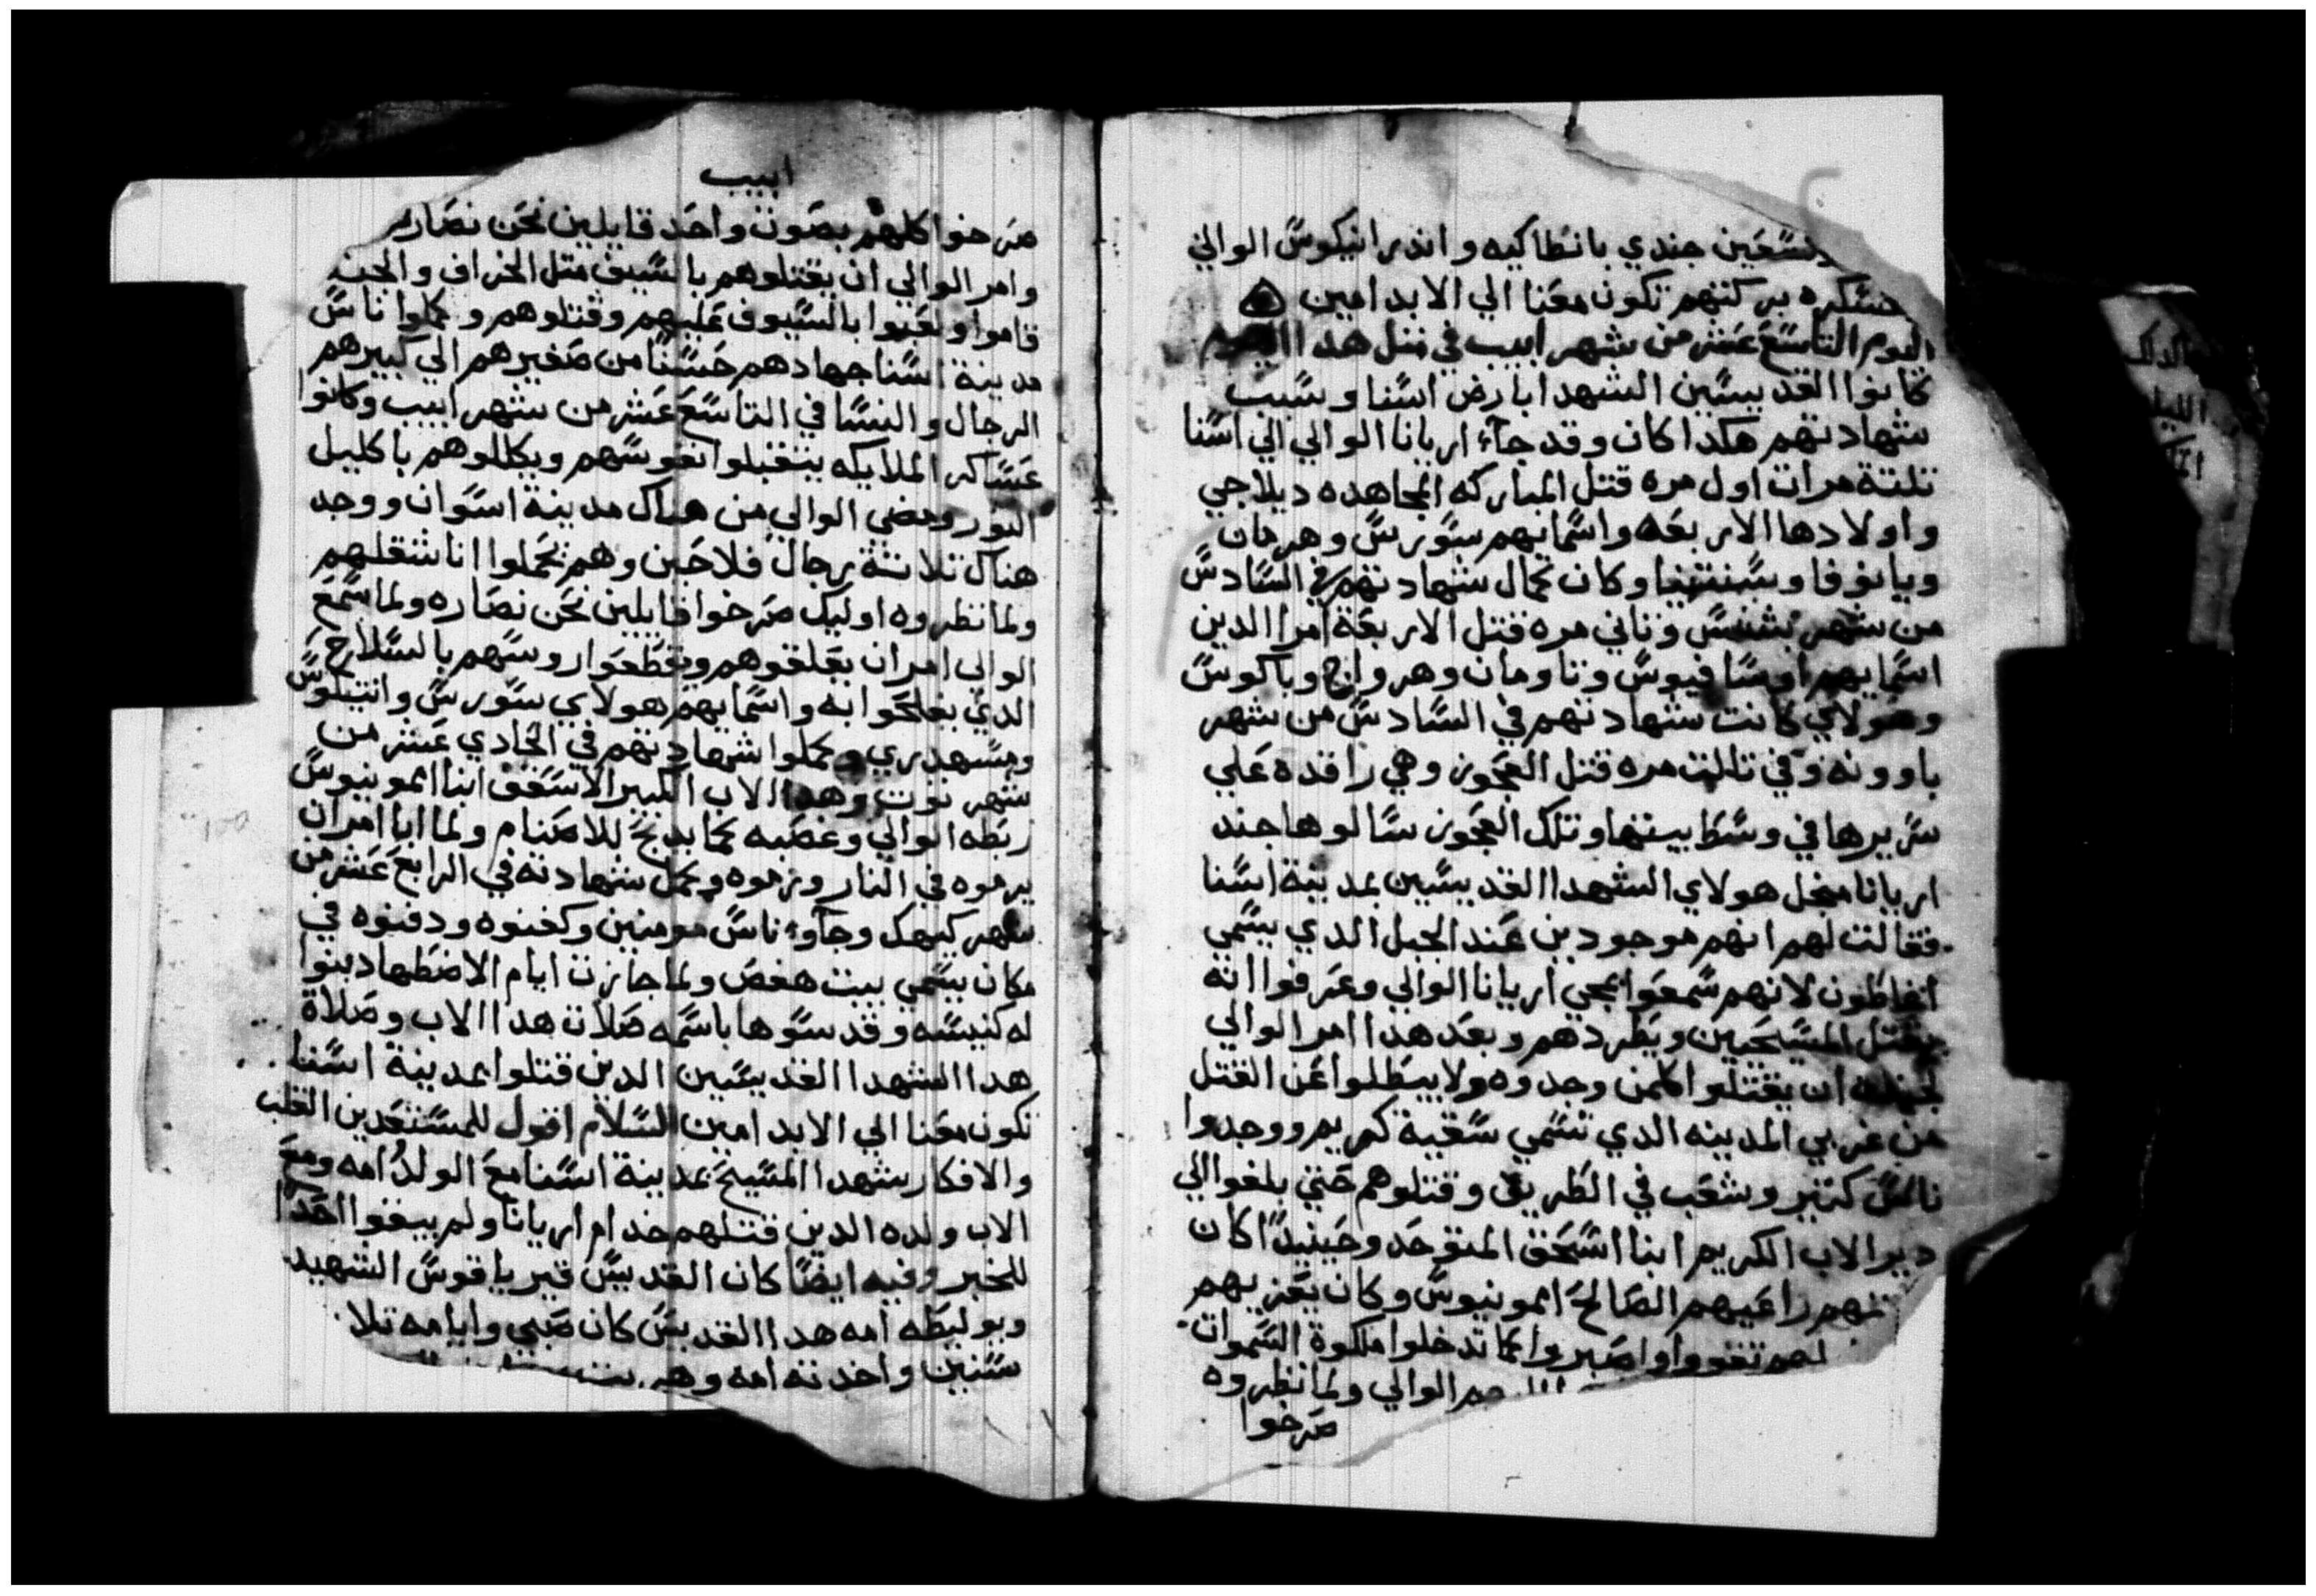 وتسعين جندي بانطاكيه واندرانيكوس الوالي
عسكره بركتهم تكون معنا الي الابد امين
اليوم التاسع عشر من شهر ابيب في متل هدا اليوم
كانوا القديسين الشهدا بارض اسنا وسبب
شهادتهم هكدا كان وقد جآء اريانا الوالي الي اسنا
تلتة مرات اول مره قتل المباركه المجاهده ديلاجي
واولادها الاربعه واسمايهم سورس وهرمان
ويانوفا وسنتنيا وكان كمال شهادتهم في السادس
من شهر بشنس وتاني مره قتل الاربعة امرا الدين
اسمايهم اوسافيوس وتاومان وهرواج وباكوس
وهولاي كانت شهادتهم في السادس من شهر
باوونه وفي تالت مره قتل العجوز وهي راقده علي
سريرها في وسط بيتها وتلك العجوز سالوها جند
اريانا منجل هولاي الشهدا القديسين بمدينة اسنا
فقالت لهم انهم موجودين عند الجبل الدي يسمي
اغاطون لانهم سمعوا بمجي اريانا الوالي وعرفوا انه
يقتل المسيحيين ويطردهم وبعد هدا امر الوالي
لجنده ان يقتلوا كلمن وجدوه ولا يبطلوا عن القتل
من غربي المدينه الدي تسمي سقية كمريم ووجدوا
ناس كتير وشعب في الطريق وقتلوهم حتي بلغوا الي
دير الاب الكريم ابنا اسحق المتوحد وحينيدًا كان
راعيهم الصالح امونيوس وكان يعزيهم
لهم تقووا واصبروا كما تدخلوا ملكوة السموات
الوالي ولما نظروه
صرخوا
ابيب
صرخوا كلهم بصوت واحد قايلين نحن نصاره
وامر الوالي ان يقتلوهم بالسيف متل الخراف والجند
قاموا ولعبوا بالسيوف عليهم وقتلوهم وكملوا ناس
مدينة اسنا جهادهم حسنًا من صغيرهم الي كبيرهم
الرجال والنسا في التاسع عشر من شهر ابيب وكانوا
عساكر الملايكه يتقبلوا نفوسهم ويكللوهم باكليل
النور ومضي الوالي من هناك مدينة اسوان ووجد
هناك تلاتة رجال فلاحين وهم تحملوا اناشقلهم
ولما نظروه اوليك صرخوا قايلين نحن نصاره ولما سمع
الوالي امر ان يعلقوهم ويقطعوا روسهم بالسلاح
الدي يفلحوا به واسمايهم هولاي سورس وانتيلوس
ومسهدري وكملوا شهادتهم في الحادي عشر من
شهر توت وهدا الاب الكبير الاسقف ابنا امونيوس
ربطه الوالي وغصبه كما يدبح للاصنام ولما ابا امر ان
يرموه في النار ورموه وكمل شهادته في الرابع عشر من
شهر كيهك وجآوء ناس مومنين وكفنوه ودفنوه في
مكان يسمي بيت هغص ولما جازت ايام الاضطهاد بنوا
له كنيسه وقد سوها باسمه صلات هدا الاب وصلاة
هدا الشهدا القديسين الدين قتلوا بمدينة اسنا
تكون معنا الي الابد امين السلام اقول للمستعدين القلب
والافكار شهدا المسيح بمدينة اسنا مع الولد امه ومع
الاب ولده الدين قتلهم خدام اريانا ولم يبقوا احدًا
للخبر وفيه ايضًا كان القديس قيرياقوس الشهيد
ويوليطه امه هدا القديس كان صبي وايامه تلا
سنين واخدته امه